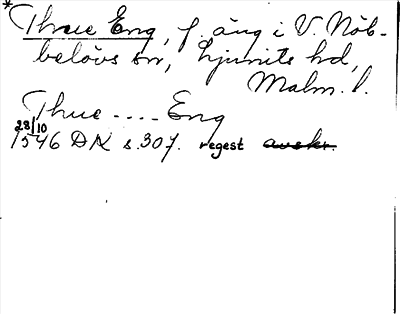 * Thrue Eng, f. äng i V. Nöb-
belövs sn, Ljunits hd,
Malm. l.
Thue .... Eng
28/10
1546 DK s. 307. regest avskr.